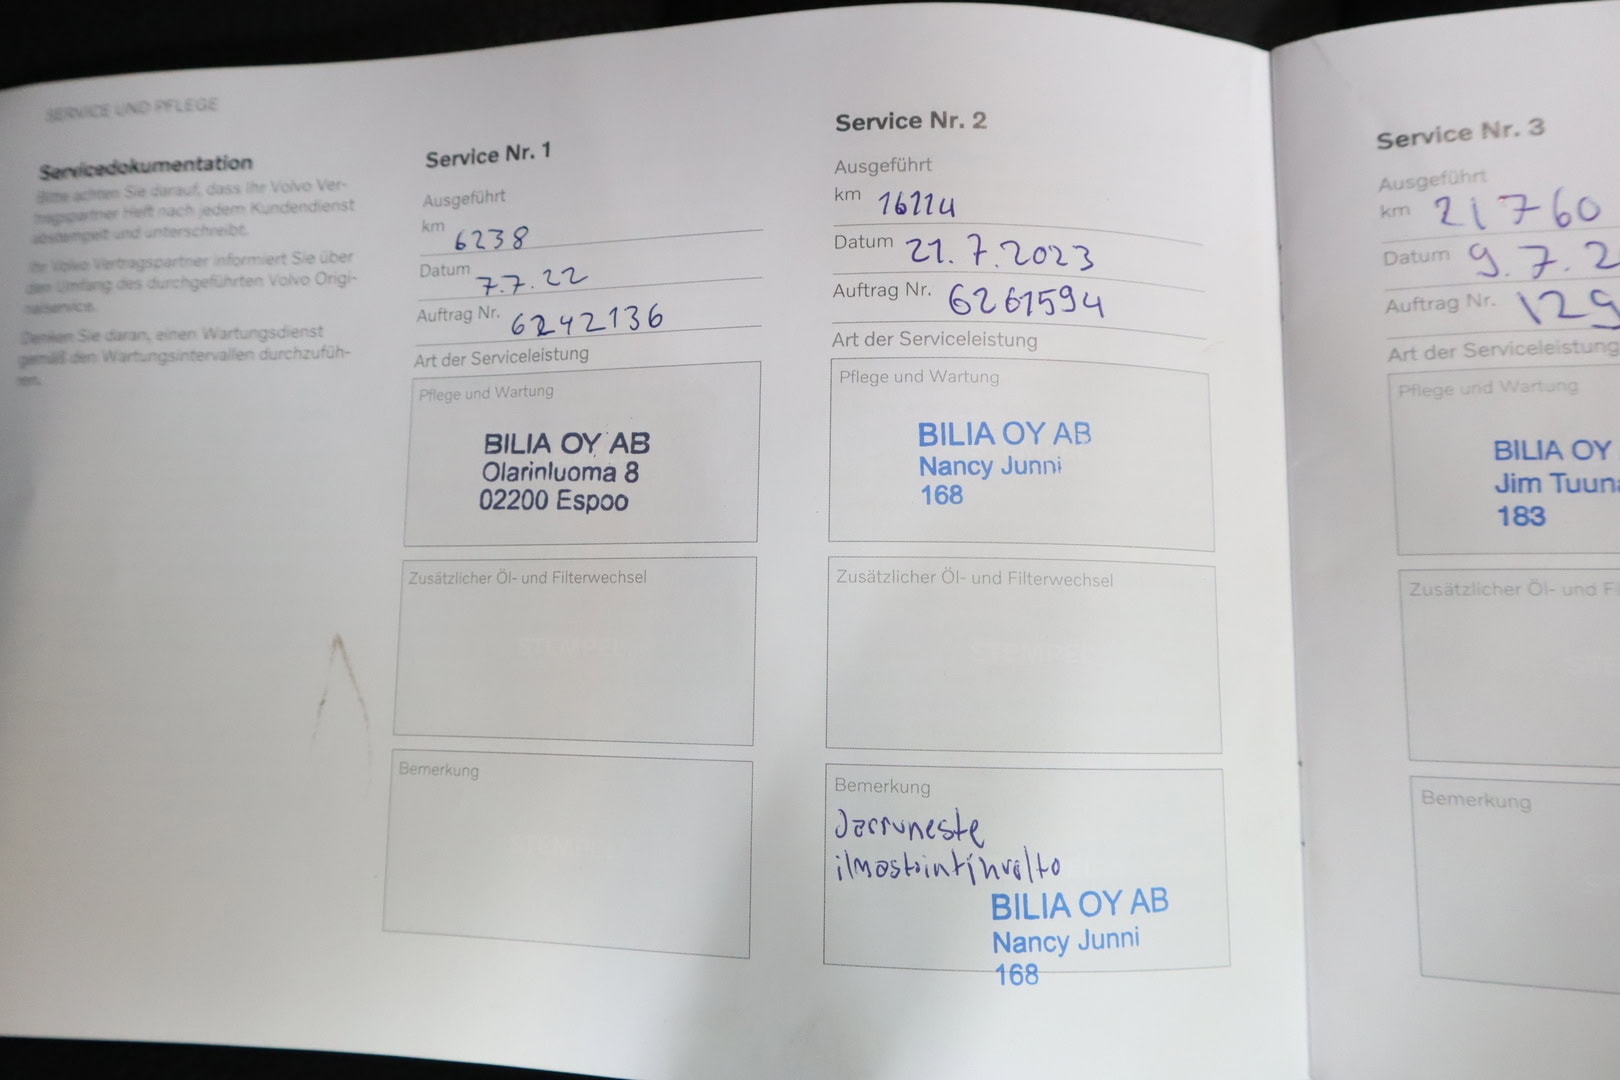 SERVICE UND PFLEGE
Servicedokumentation
Bitte achten Sie darauf, dass Ihr Volvo Ver-
tragspartner Heft nach jedem Kundendienst
abstempelt und unterschreibt.
Ihr Volvo Vertragspartner informiert Sie über
den Umfang des durchgeführten Volvo Origi-
nalservice.
Denken Sie daran, einen Wartungsdienst
gemäß den Wartungsintervallen durchzufüh-
ren.
Service Nr. 1
Ausgeführt
km 6238
Datum 7.7.22
Auftrag Nr. 6242136
Art der Serviceleistung
Pflege und Wartung
BILIA OY AB
Olarinluoma 8
02200 Espoo
Zusätzlicher Öl- und Filterwechsel
STEMPEL
Bemerkung
Service Nr. 2
Ausgeführt
km 16114
Datum 21.7.2023
Auftrag Nr. 6261594
Art der Serviceleistung
Pflege und Wartung
BILIA OY AB
Nancy Junni
168
Zusätzlicher Öl- und Filterwechsel
STEMPEL
Bemerkung
Jarruneste
ilmastointihuolto
BILIA OY AB
Nancy Junni
168
Service Nr. 3
Ausgeführt
km 21760
Datum 9.7.2
Auftrag Nr. 129
Art der Serviceleistung
Pflege und Wartung
BILIA OY
Jim Tuuna
183
Zusätzlicher Öl- und Fi
Bemerkung